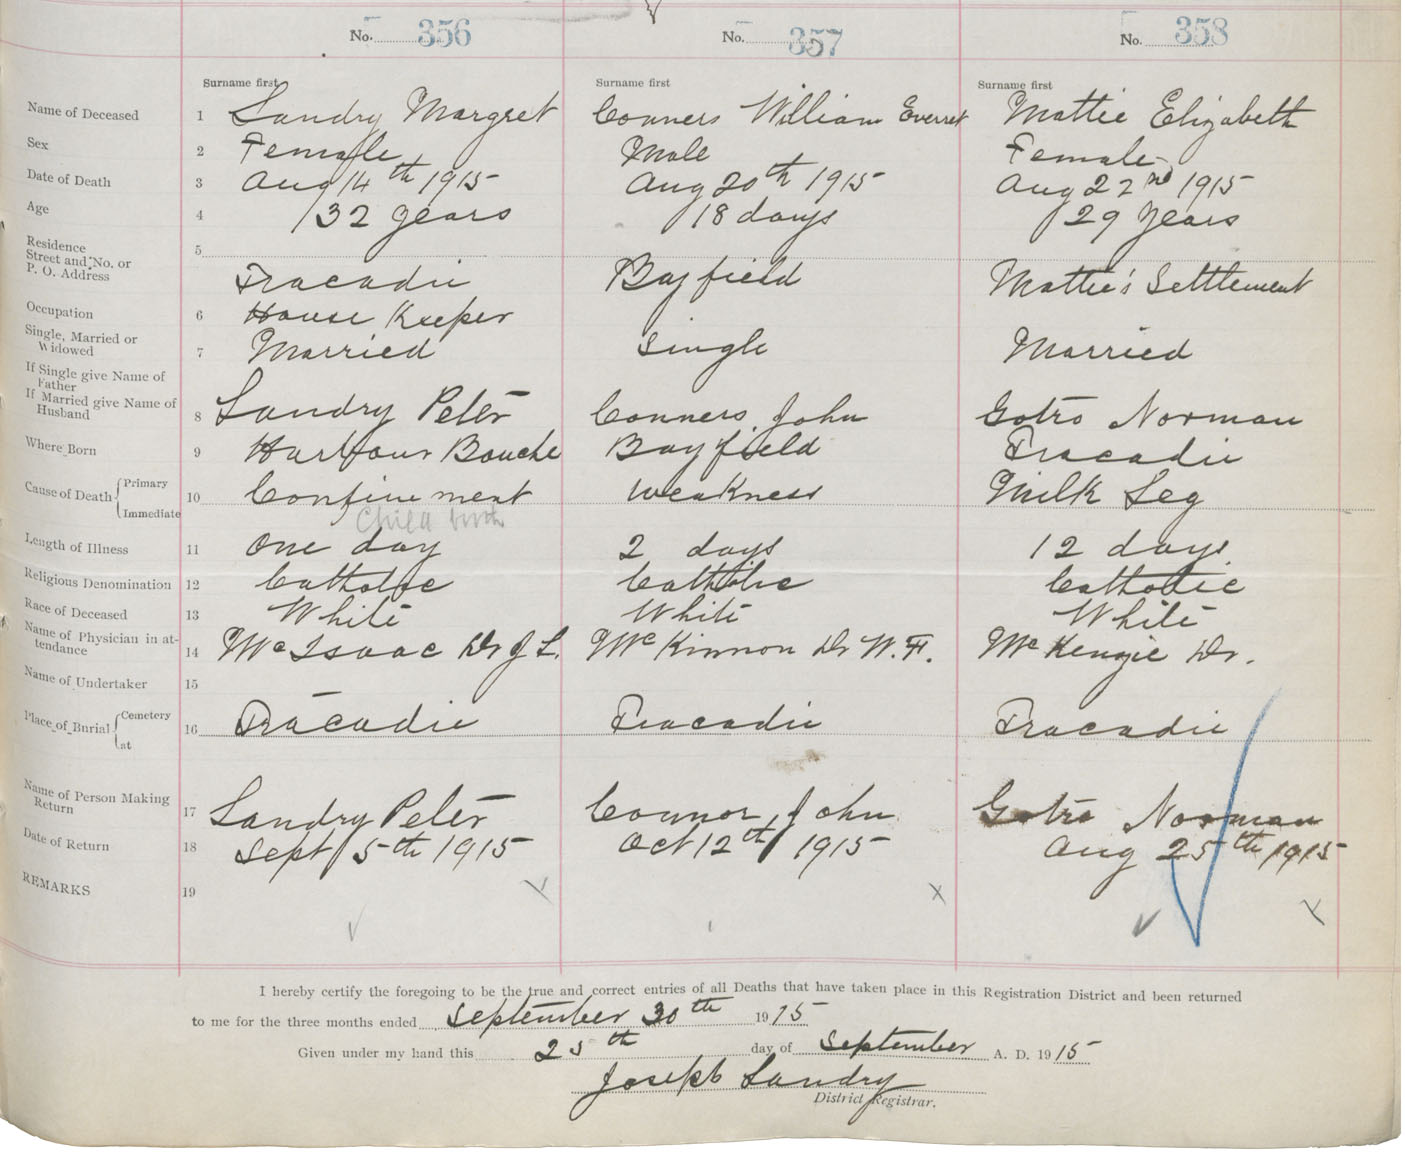 No. 356 No. 357 No. 358
Surname first Surname first Surname first
Name of Deceased 1 Landry Margret Conners William Everret Mattie Elizabeth
Sex 2 Female Male Female
Date of Death 3 Aug 14th 1915 Aug 20th 1915 Aug 22nd 1915
Age 4 32 years 18 days 29 years
Residence 5
Street and No. or
P. O. Address Tracadie Bayfield Mattie's Settlement
Occupation 6 House Keeper
Single, Married or
Widowed 7 Married Single Married
If Single give Name of
Father
If Married give Name of
Husband 8 Landry Peter Conners, John Gotro Norman
Where Born 9 Harbour Bouche Bayfield Tracadie
Cause of Death Primary
Immediate 10 Confinement weakness Milk Leg
Child birth
Length of Illness 11 One day 2 days 12 days
Religious Denomination 12 Catholic Catholic Catholic
Race of Deceased 13 White White White
Name of Physician in at-
tendance 14 McIsaac Dr J L. McKinnon Dr W. F. McKenzie Dr.
Name of Undertaker 15
Place of Burial Cemetery
at 16 Tracadie Tracadie Tracadie
Name of Person Making
Return 17 Landry Peter Connor, John Gotro Norman
Date of Return 18 Sept 5th 1915 Oct 12th 1915 Aug 25th 1915
REMARKS 19
I hereby certify the foregoing to be the true and correct entries of all Deaths that have taken place in this Registration District and been returned
to me for the three months ended September 30th 1915
Given under my hand this 25th day of September A. D. 1915
Joseph Landry
District Registrar.